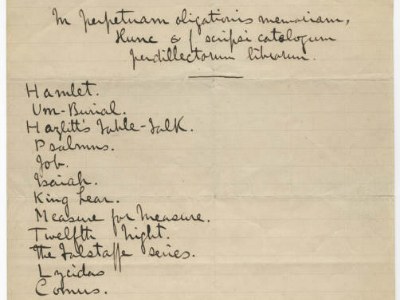 In perpetuam obligationis memoriam,
Hunc scripsi catalogum
perdillectorum librorum.
Hamlet.
Urn-Burial.
Hazlitt's Table-Talk.
Psalmus.
Job.
Isaiah.
King Lear.
Measure for Measure.
Twelfth Night.
The Falstaffe series.
Lycidas
Comus.